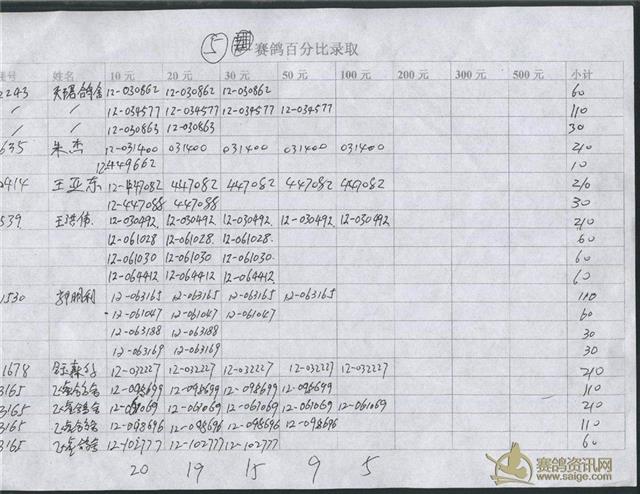 5 赛鸽百分比录取
号 姓名 10 元 20 元 30 元 50 元 100 元 200 元 300 元 500 元 小计
2243 12-030862 12-030862 12-030862 60
/ / 12-034577 12-034577 12-034577 12-034577 110
/ / 12-030863 12-030863 30
635 朱杰 12-031400 031400 031400 031400 031400 210
12-449662 10
0414 王亚东 12-447082 447082 447082 447082 447082 210
12-447088 447088 30
539 王洪伟 12-030492 12-030492 12-030492 12-030492 12-030492 210
12-061028 12-061028 12-061028 60
12-061030 12-061030 12-061030 60
12-064412 12-064412 12-064412 60
1530 12-063165 12-063165 12-063165 12-063165 110
12-061047 12-061047 12-061047 60
12-063188 12-063188 30
12-063169 12-063169 30
1678 12-032227 12-032227 12-032227 12-032227 12-032227 210
3165 12-098699 12-098699 12-098699 12-098699 110
3165 12-061069 12-061069 12-061069 12-061069 12-061069 210
3165 12-098696 12-098696 12-098696 12-098696 110
3165 12-102777 12-102777 12-102777 60
20 19 15 9 5
赛鸽资讯网
www.saige.com